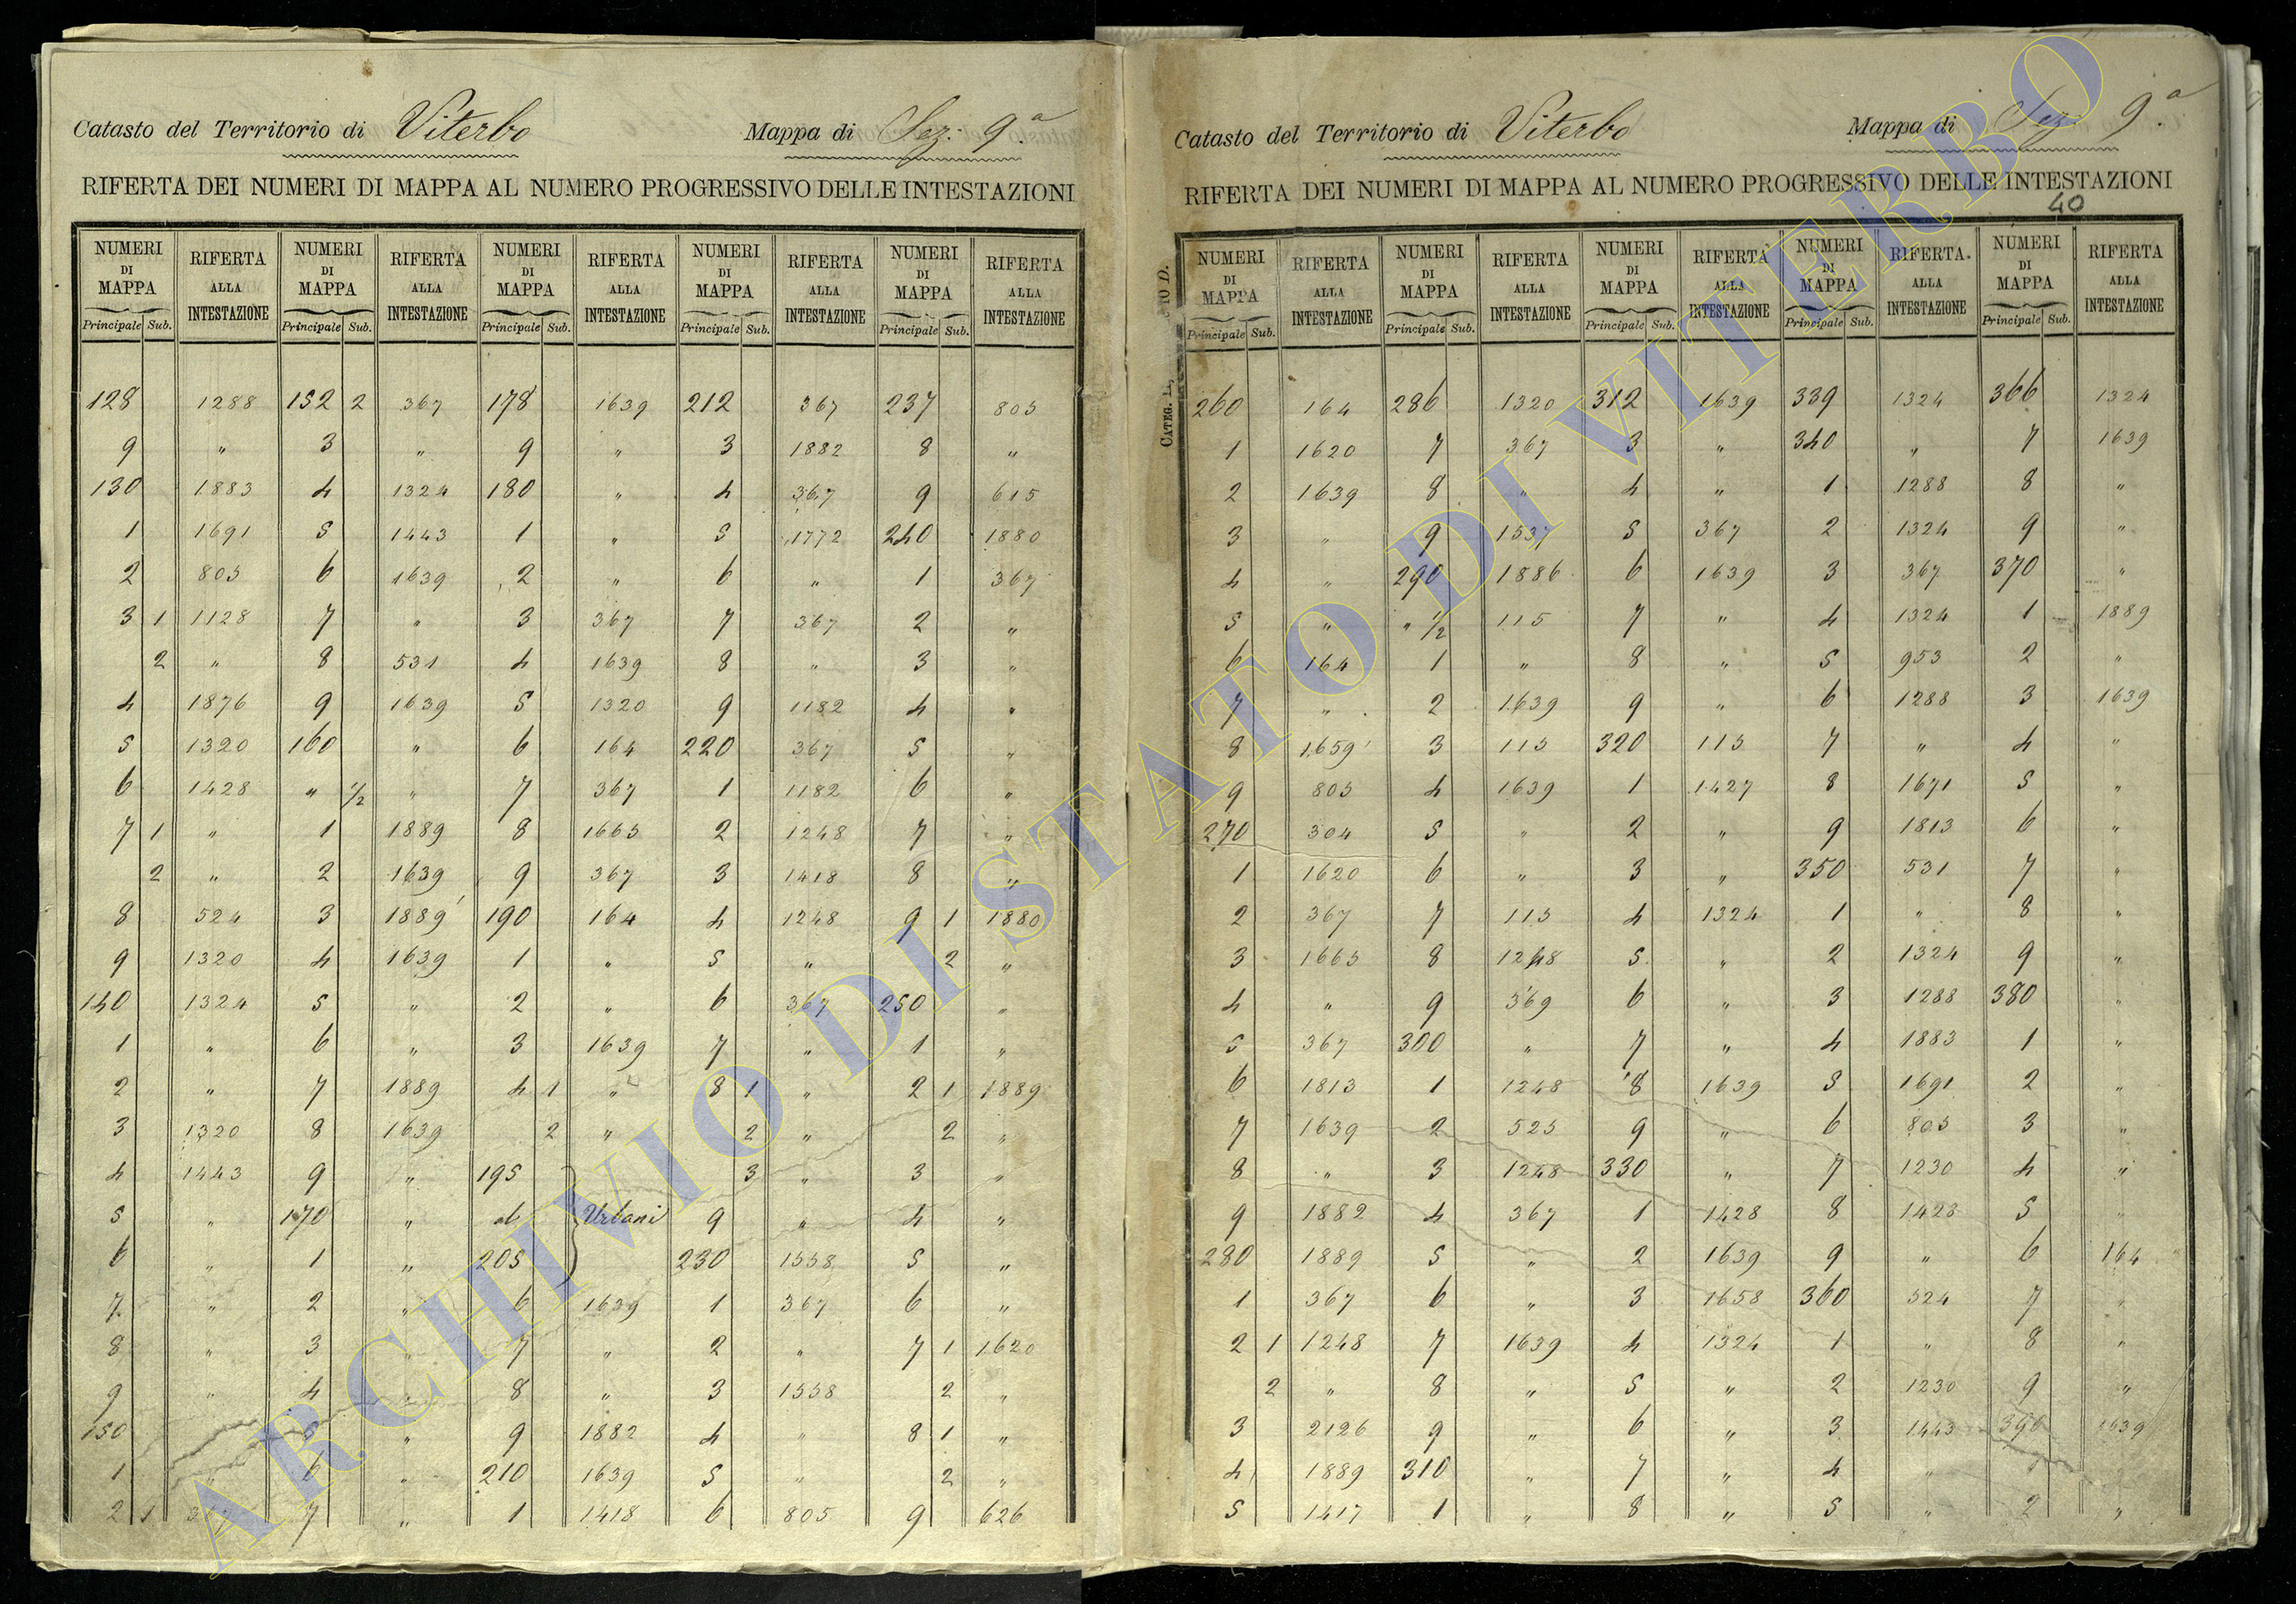 Catasto del Territorio di Viterbo Mappa di Sez. 9a
RIFERTA DEI NUMERI DI MAPPA AL NUMERO PROGRESSIVO DELLE INTESTAZIONI
NUMERI DI MAPPA RIFERTA ALLA INTESTAZIONE NUMERI DI MAPPA RIFERTA ALLA INTESTAZIONE NUMERI DI MAPPA RIFERTA ALLA INTESTAZIONE NUMERI DI MAPPA RIFERTA ALLA INTESTAZIONE NUMERI DI MAPPA RIFERTA ALLA INTESTAZIONE
Principale Sub. Principale Sub. Principale Sub. Principale Sub. Principale Sub.
128 1288 152 2 367 178 1639 212 367 237 805
9 " 3 " 9 " 3 1882 8 "
130 1883 4 1324 180 " 4 367 9 615
1 1691 5 1443 1 " 5 1772 240 1880
2 805 6 1639 2 " 6 " 1 367
3 1 1128 7 " 3 367 7 367 2 "
2 " 8 531 4 1639 8 " 3 "
4 1876 9 1639 5 1320 9 1182 4 "
5 1320 160 " 6 164 220 367 5 "
6 1428 " 1/2 " 7 367 1 1182 6 "
7 1 " 1 1889 8 1665 2 1248 7 "
2 " 2 1639 9 367 3 1418 8 "
8 524 3 1889 190 164 4 1248 9 1 1880
9 1320 4 1639 1 " 5 " 2 "
140 1324 5 " 2 " 6 367 250 "
1 " 6 " 3 1639 7 " 1 "
2 " 7 1889 4 1 " 8 1 " 2 1 1889
3 1320 8 1639 2 " 2 " 2 "
4 1443 9 " 195 3 " 3 "
5 " 170 " al Urbani 9 " 4 "
6 " 1 " 205 230 1558 5 "
7 " 2 " 6 1639 1 367 6 "
8 " 3 " 7 " 2 " 7 1 1620
9 " 4 " 8 " 3 1558 2 "
150 5 " 9 1882 4 " 8 1 "
1 " 6 " 210 1639 5 " 2 "
2 1 367 7 " 1 1418 6 805 9 626
Catasto del Territorio di Viterbo Mappa di Sez. 9a
RIFERTA DEI NUMERI DI MAPPA AL NUMERO PROGRESSIVO DELLE INTESTAZIONI
40
NUMERI DI MAPPA RIFERTA ALLA INTESTAZIONE NUMERI DI MAPPA RIFERTA ALLA INTESTAZIONE NUMERI DI MAPPA RIFERTA ALLA INTESTAZIONE NUMERI DI MAPPA RIFERTA ALLA INTESTAZIONE NUMERI DI MAPPA RIFERTA ALLA INTESTAZIONE
Principale Sub. Principale Sub. Principale Sub. Principale Sub. Principale Sub.
260 164 286 1320 312 1639 339 1324 366 1324
1 1620 7 367 3 " 340 " 7 1639
2 1639 8 " 4 " 1 1288 8 "
3 " 9 1537 5 367 2 1324 9 "
4 " 290 1886 6 1639 3 367 370 "
5 " " 1/2 115 7 " 4 1324 1 1889
6 164 1 " 8 " 5 953 2 "
7 " 2 1639 9 " 6 1288 3 1639
8 1659 3 115 320 115 7 " 4 "
9 805 4 1639 1 1427 8 1671 5 "
270 304 5 " 2 " 9 1813 6 "
1 1620 6 " 3 " 350 531 7 "
2 367 7 115 4 1324 1 " 8 "
3 1665 8 1248 5 " 2 1324 9 "
4 " 9 369 6 " 3 1288 380 "
5 367 300 " 7 " 4 1883 1 "
6 1813 1 1248 8 1639 5 1691 2 "
7 1639 2 525 9 " 6 805 3 "
8 " 3 1248 330 " 7 1230 4 "
9 1882 4 367 1 1428 8 1423 5 "
280 1889 5 " 2 1639 9 " 6 164
1 367 6 " 3 1658 360 524 7 "
2 1 1248 7 1639 4 1324 1 " 8 "
2 " 8 " 5 " 2 1230 9 "
3 2126 9 " 6 " 3 1443 390 1639
4 1889 310 " 7 " 4 " "
5 1417 1 " 8 " 5 " 2 "
CATEG.
ARCHIVIO DI STATO DI VITERBO